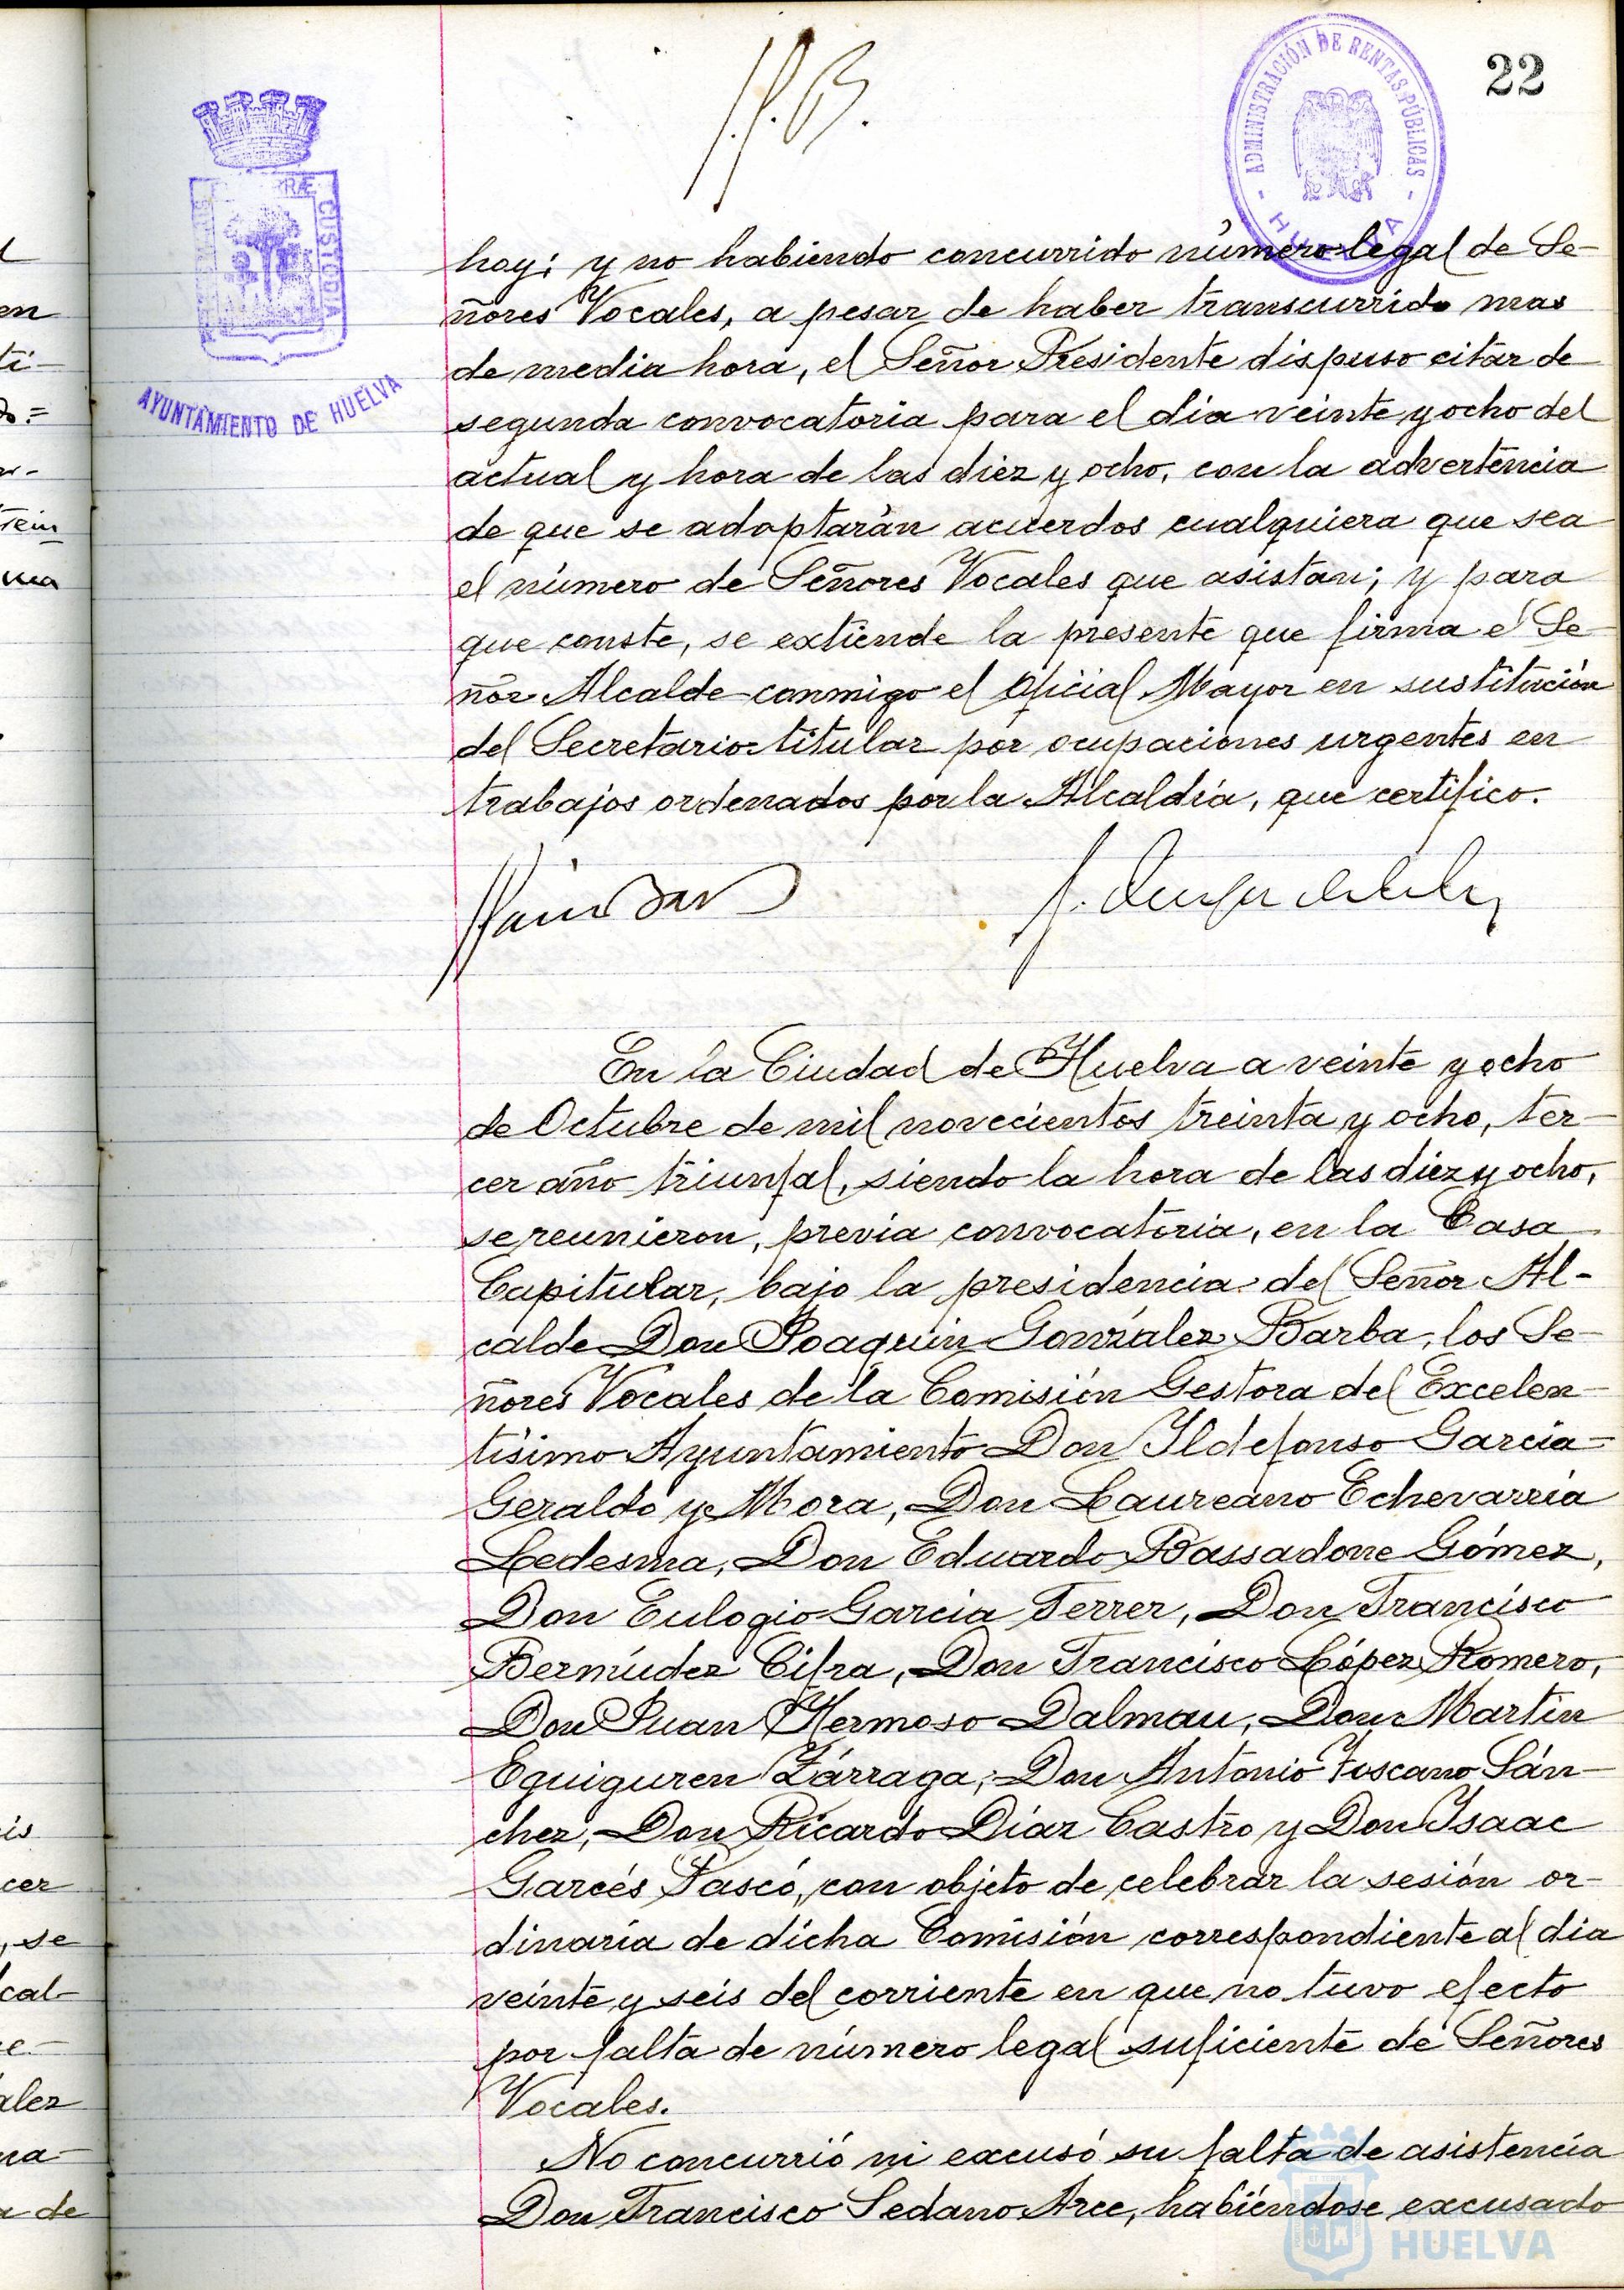 22
ADMINISTRACIÓN DE RENTAS PÚBLICAS
HUELVA
CUSTODIA
AYUNTAMIENTO DE HUELVA
hoy; y no habiendo concurrido número legal de Se-
ñores Vocales, a pesar de haber transcurrido mas
de media hora, el Señor Presidente dispuso citar de
segunda convocatoria para el día veinte y ocho del
actual y hora de las diez y ocho, con la advertencia
de que se adoptarán acuerdos cualquiera que sea
el número de Señores Vocales que asistan; y para
que conste, se extiende la presente que firma el Se-
ñor Alcalde conmigo el Oficial Mayor en sustitución
del Secretario titular por ocupaciones urgentes en
trabajos ordenados por la Alcaldía, que certifico.
En la Ciudad de Huelva a veinte y ocho
de Octubre de mil novecientos treinta y ocho, ter-
cer año triunfal, siendo la hora de las diez y ocho,
se reunieron, previa convocatoria, en la Casa
Capitular, bajo la presidencia del Señor Al-
calde Don Joaquín González Barba, los Se-
ñores Vocales de la Comisión Gestora del Excelen-
tísimo Ayuntamiento Don Ildefonso García-
Geraldo y Mora, Don Laureano Echevarría
Ledesma, Don Eduardo Bassadone Gómez,
Don Eulogio García Ferrer, Don Francisco
Bermúdez Cifra, Don Francisco López Romero,
Don Juan Hermoso Dalmau, Don Martín
Eguiguren Zárraga, Don Antonio Toscano Sán-
chez, Don Ricardo Díaz Castro y Don Isaac
Garcés Pascó, con objeto de celebrar la sesión or-
dinaria de dicha Comisión correspondiente al dia
veinte y seis del corriente en que no tuvo efecto
por falta de número legal suficiente de Señores
Vocales.
No concurrió ni excusó su falta de asistencia
Don Francisco Sedano Arce, habiéndose excusado
HUELVA